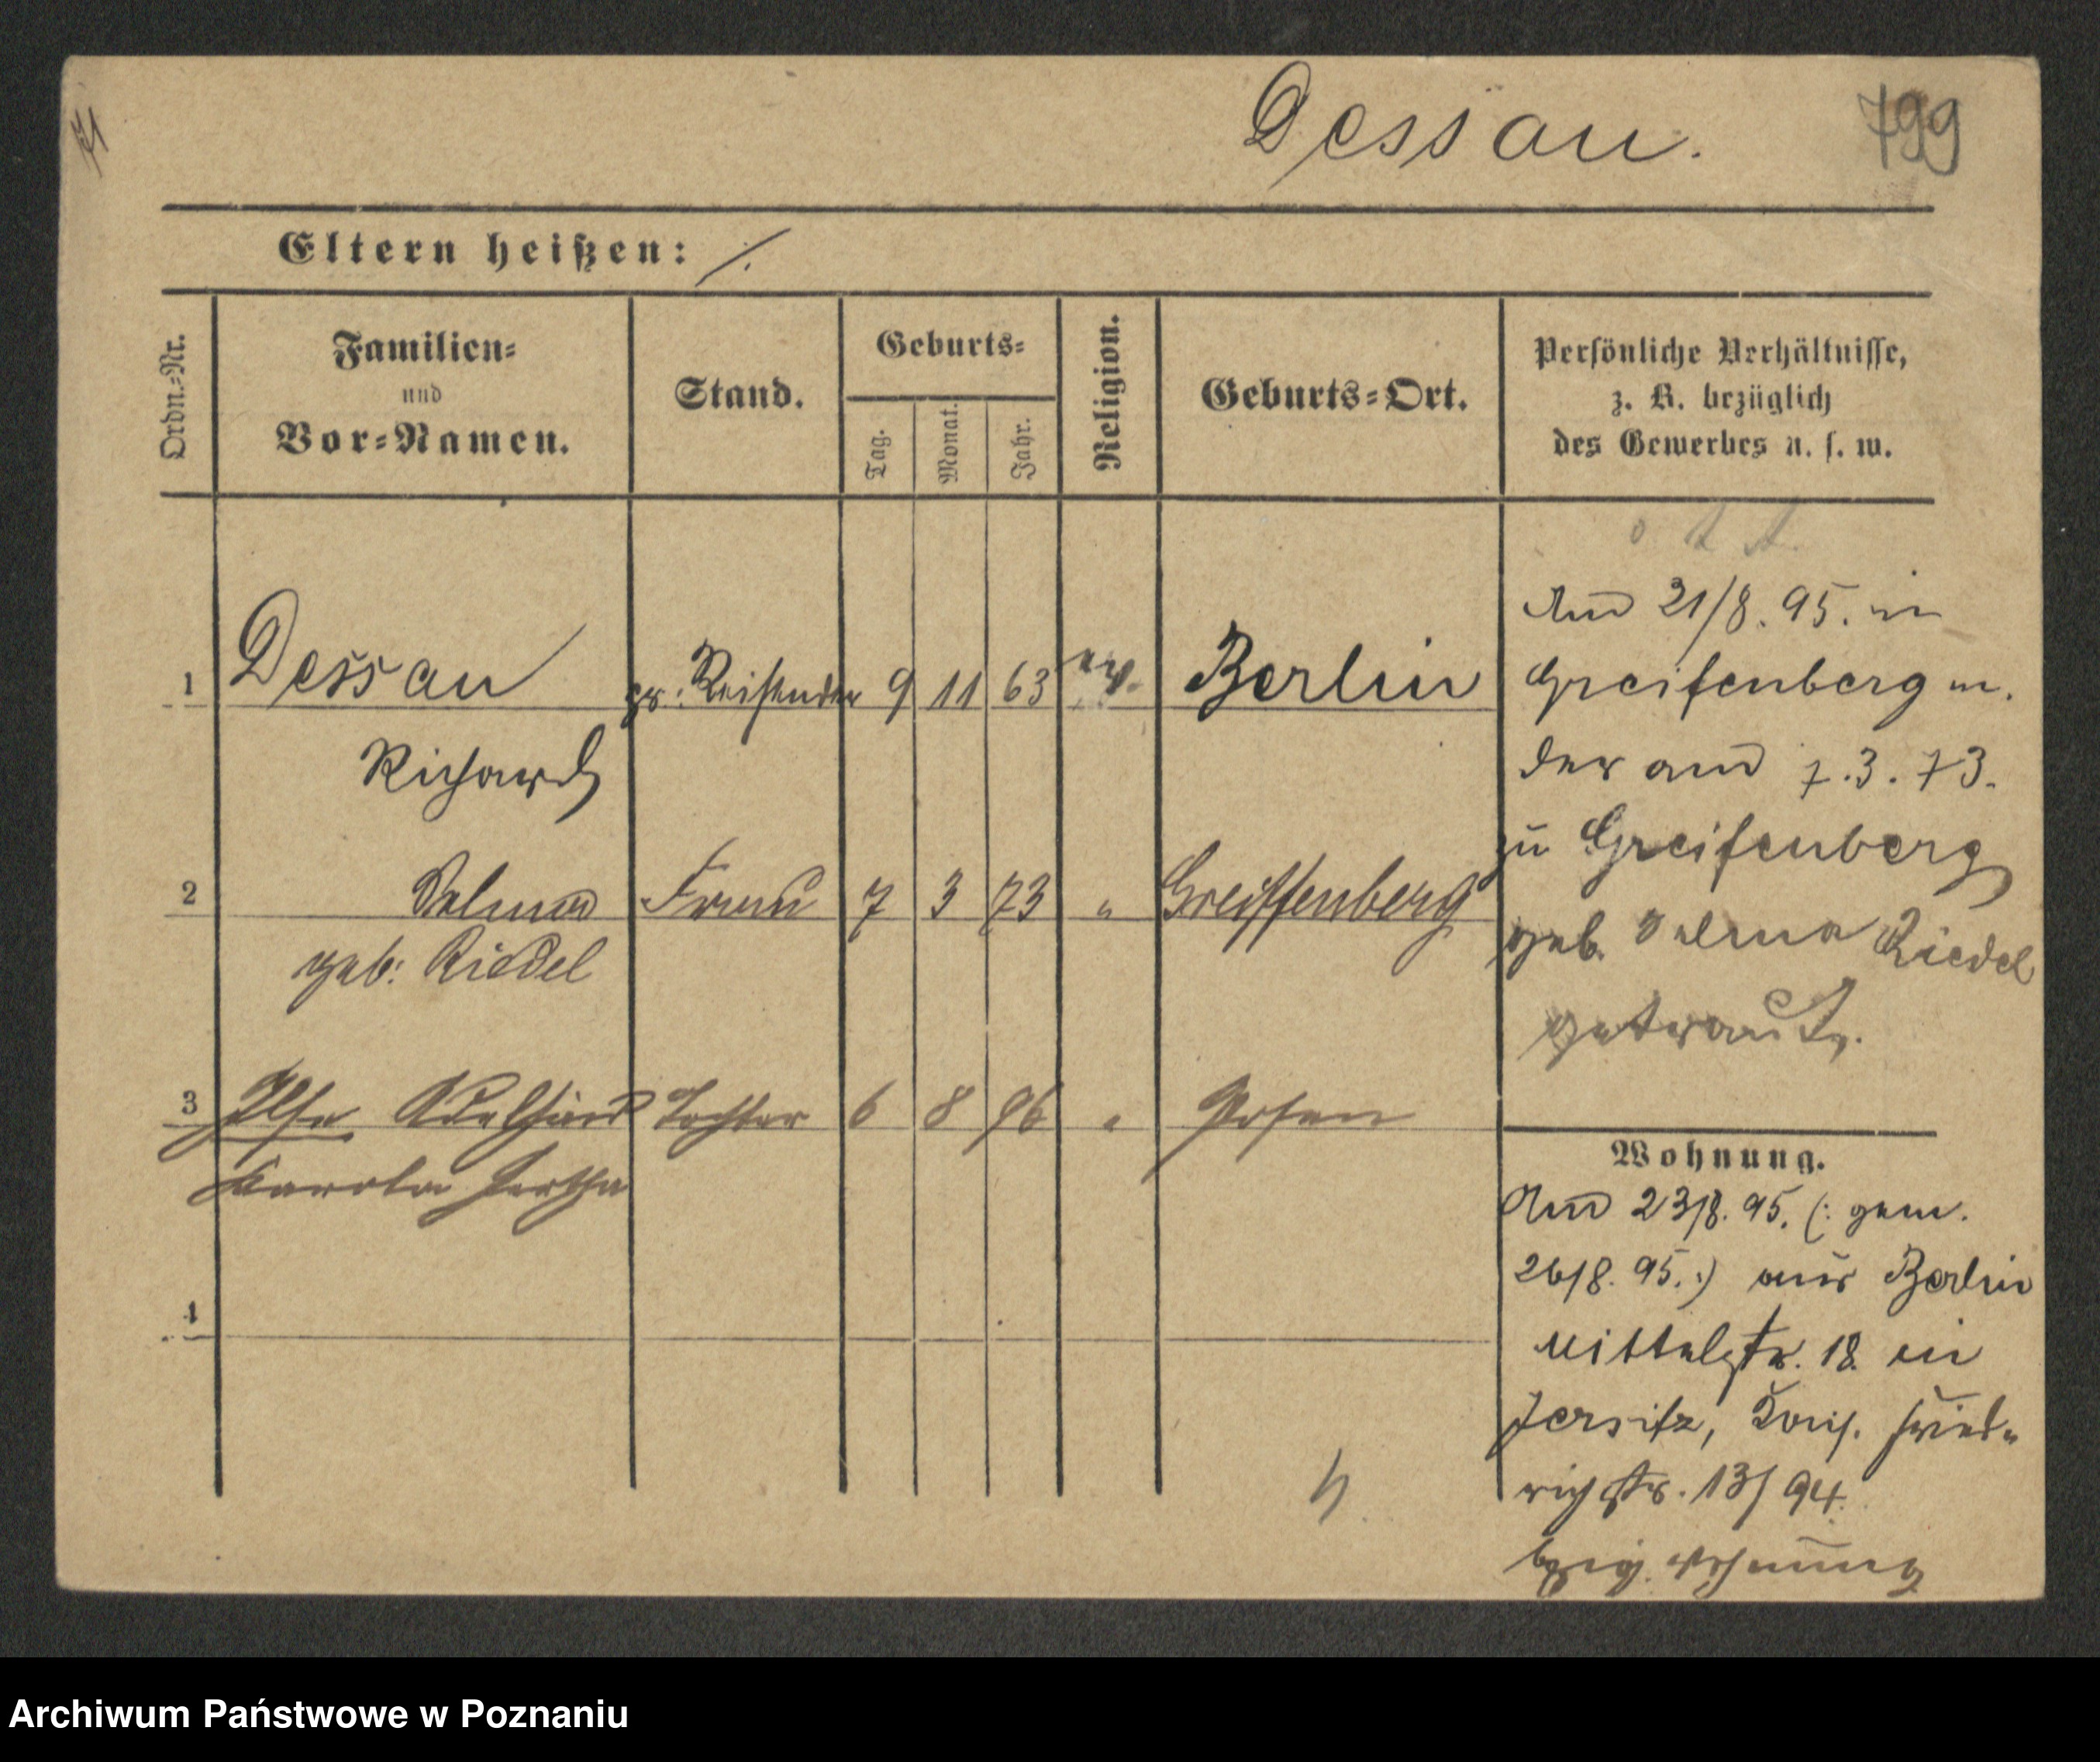 71
Dessau.
799
Eltern heißen: ⁒
Ordn.-Nr.
Familien-
und
Vor-Namen.
Stand.
Geburts-
Tag.
Monat.
Jahr.
Religion.
Geburts-Ort.
Persönliche Verhältnisse,
z. B. bezüglich
des Gewerbes u. s. w.
1 Dessau Reisender 9 11 63 ev. Berlin
Richard
2 Selma Frau 7 3 73 " Greiffenberg
geb: Riedel
3 Ilse Adelheid Tochter 6 8 96 " Posen
Karola Hertha
4
Am 21/8. 95. in
Greifenberg m.
der am 7. 3. 73.
zu Greifenberg
geb. Selma Riedel
getraut.
Wohnung.
Am 23/8. 95. (: gem.
26/8. 95. :) aus Berlin
Mittelstr. 18. in
Jersitz, Kais. Fried-
richstr. 13/94.
Wohnung
Archiwum Państwowe w Poznaniu